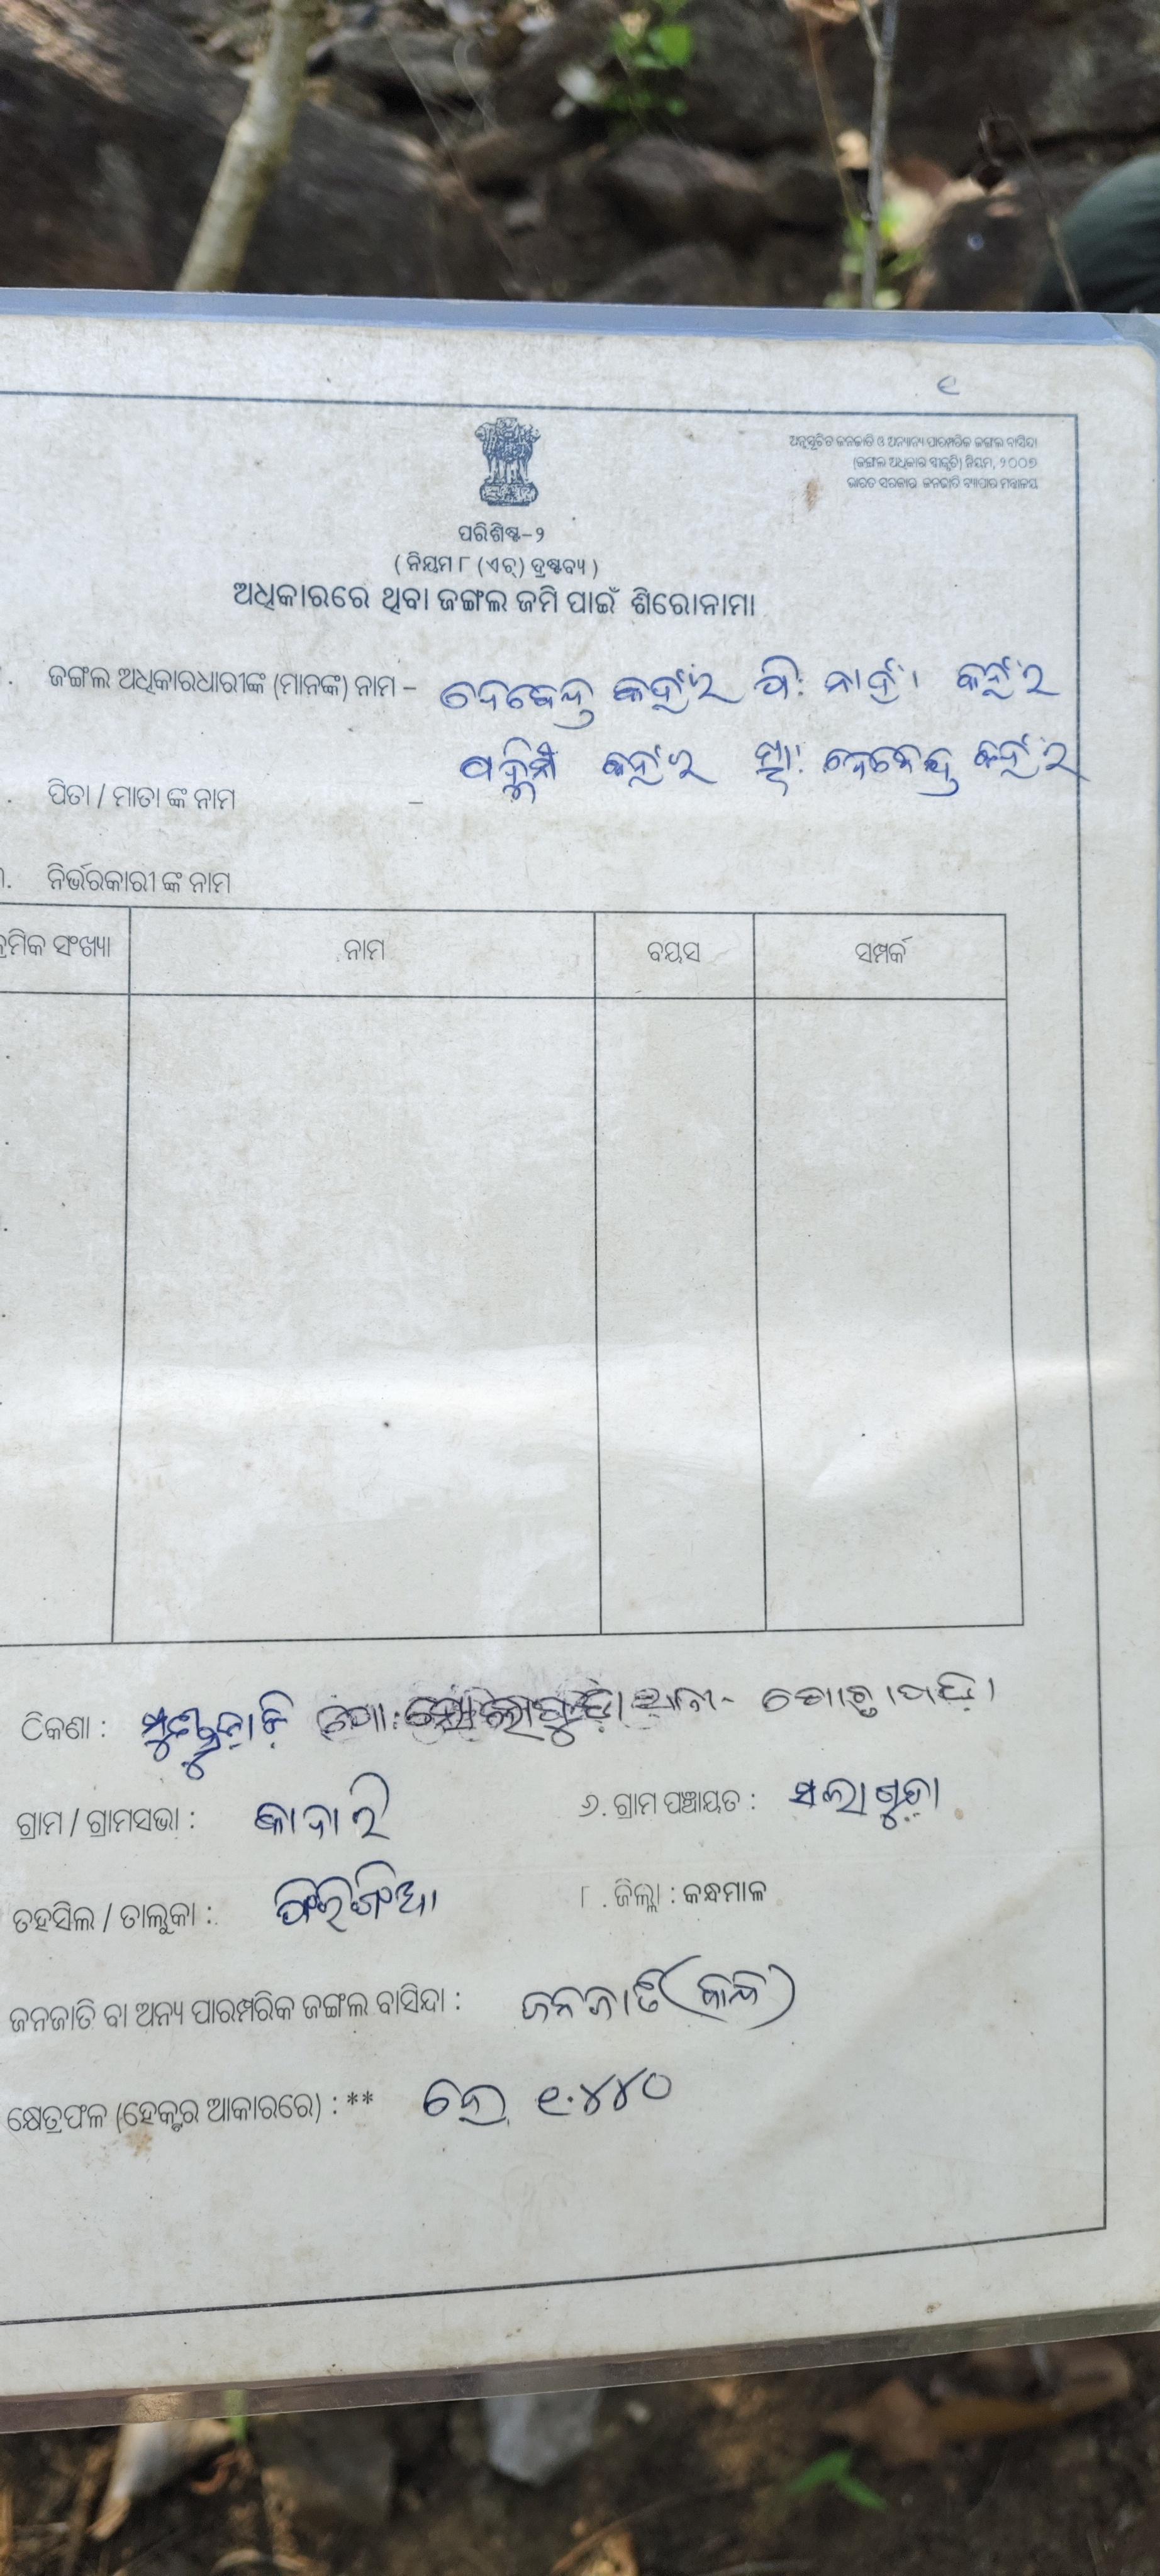 ୧
ଅନୁସୂଚିତ ଜନଜାତି ଓ ଅନ୍ୟାନ୍ୟ ପାରମ୍ପରିକ ଜଙ୍ଗଲ ବାସିନ୍ଦା
(ଜଙ୍ଗଲ ଅଧିକାର ସ୍ୱୀକୃତି) ନିୟମ, ୨୦୦୭
ଭାରତ ସରକାର ଜନଜାତି ବ୍ୟାପାର ମନ୍ତ୍ରାଳୟ
ପରିଶିଷ୍ଟ-୨
( ନିୟମ ୮ (ଏଚ୍) ଦ୍ରଷ୍ଟବ୍ୟ )
ଅଧିକାରରେ ଥିବା ଜଙ୍ଗଲ ଜମି ପାଇଁ ଶିରୋନାମା
. ଜଙ୍ଗଲ ଅଧିକାରଧାରୀଙ୍କ (ମାନଙ୍କ) ନାମ – କହଁର ପି: କହଁର
କହଁର ସ୍ୱା: କହଁର
. ପିତା / ମାତା ଙ୍କ ନାମ –
. ନିର୍ଭରକାରୀ ଙ୍କ ନାମ
କ୍ରମିକ ସଂଖ୍ୟା ନାମ ବୟସ ସମ୍ପର୍କ
ଠିକଣା :
ଗ୍ରାମ / ଗ୍ରାମସଭା : କାଦାରି ୬. ଗ୍ରାମ ପଞ୍ଚାୟତ : ସଲାଗୁଡା
ତହସିଲ / ତାଲୁକା : ଫିରିଙ୍ଗିଆ ୮ . ଜିଲ୍ଲା : କନ୍ଧମାଳ
ଜନଜାତି ବା ଅନ୍ୟ ପାରମ୍ପରିକ ଜଙ୍ଗଲ ବାସିନ୍ଦା : ଜନଜାତି (କନ୍ଧ)
କ୍ଷେତ୍ରଫଳ (ହେକ୍ଟର ଆକାରରେ) : ** ହେ ୧.୪୪୦